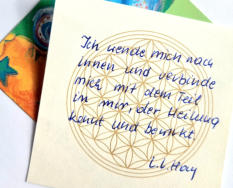 Ich wende mich nach
innen und verbinde
mich mit dem Teil
in mir, der Heilung
kennt und bewirkt.
L.L. Hay